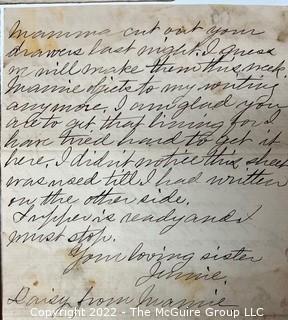 Mamma cut out your
drawers last night. I guess
we will make them this week.
Mamie objects to my writing
anymore. I am glad you
are to get that lining for I
have tried hard to get it
here. I didn't notice this sheet
was used till I had written
on the other side.
Supper is ready and I
must stop.
Your loving sister
Jennie.
Daisy from Mamie
Copyright 2022 - McGuire Group LLC